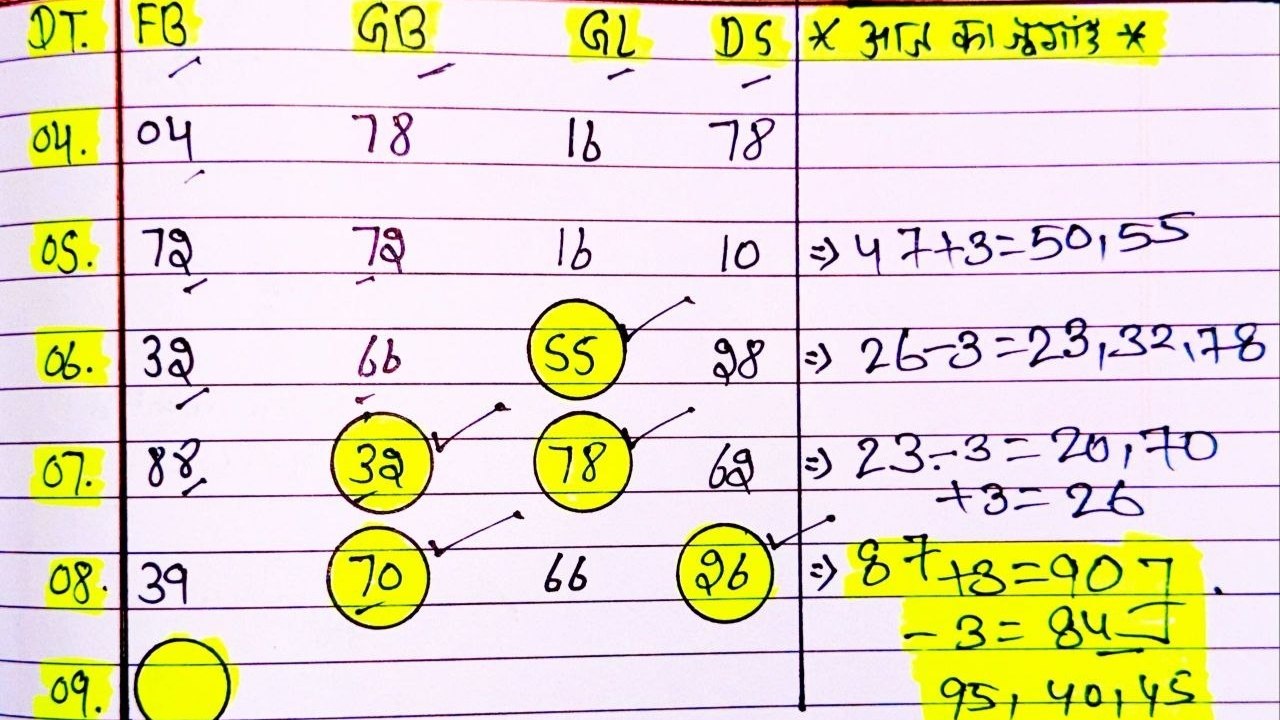 DT. FB GB GL DS * आज का जुगाड़ *
04. 04 78 16 78
05. 72 72 16 10 => 47+3=50,55
06. 32 66 55 28 => 26-3=23,32,78
07. 88 32 78 62 => 23-3=20,70
+3=26
08. 39 70 66 26 => 87+3=90
-3=84
09. 95,40,45